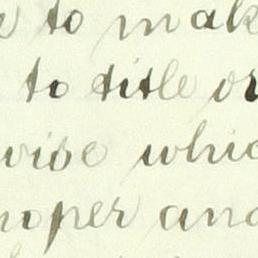 to mak
to title or
wise whic
roper and